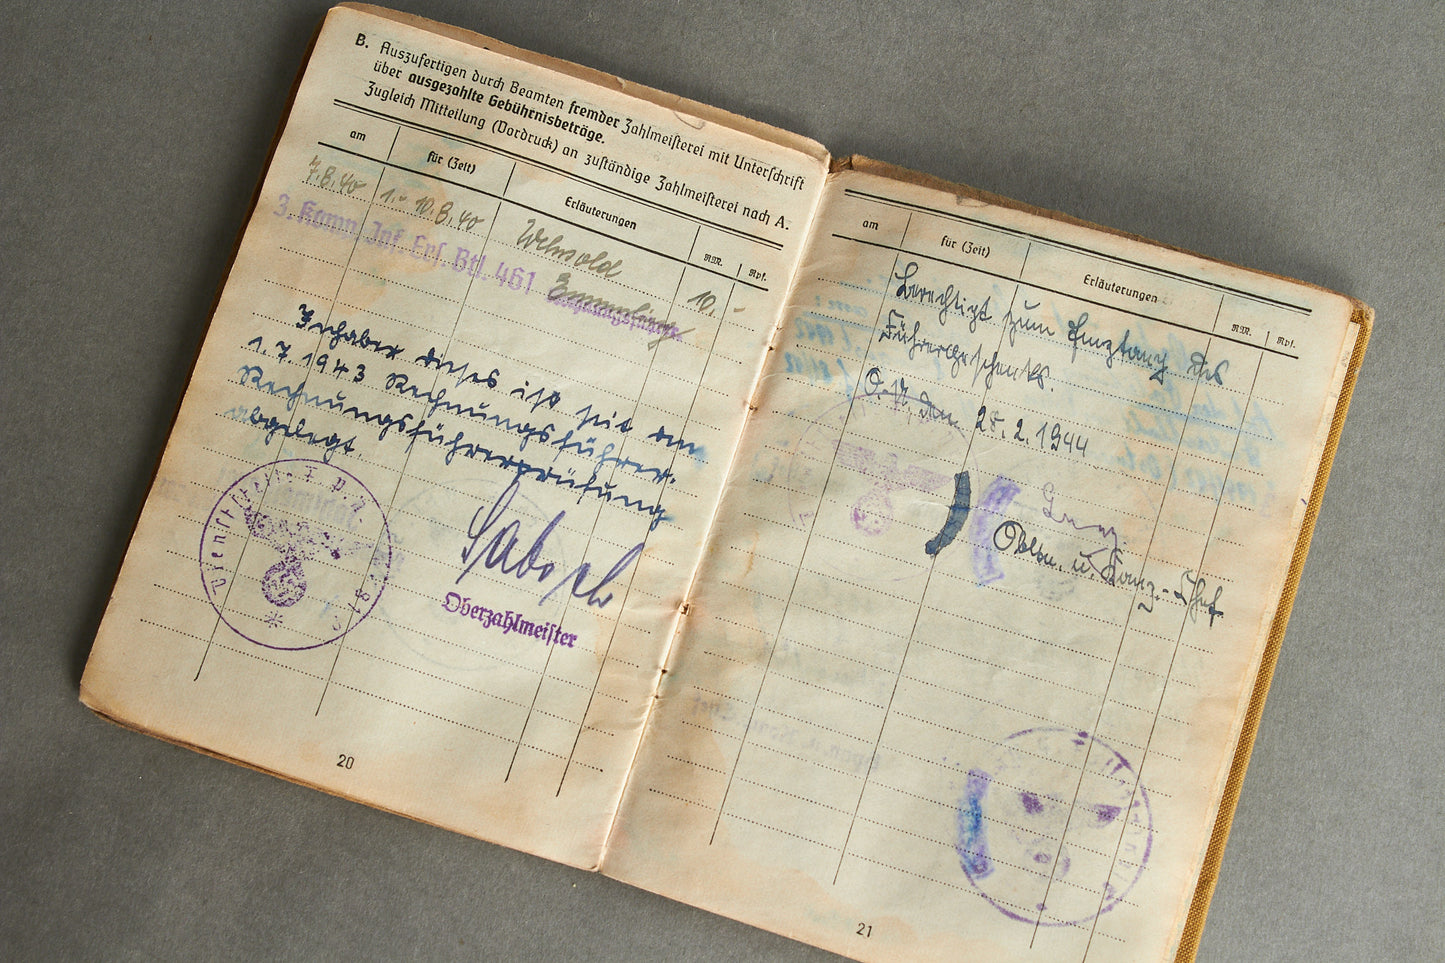 B. Auszufertigen durch Beamten fremder Zahlmeisterei mit Unterschrift
über ausgezahlte Gebührnisbeträge.
Zugleich Mitteilung (Vordruck) an zuständige Zahlmeisterei nach A.
am für (Zeit) Erläuterungen RM. Rpf.
7.8.40 1.- 10.8.40 Wehrsold 10. -
3. Komp. Inf. Ers. Btl. 461
Rechnungsführer
Inhaber dieses ist seit dem
1.7.1943 Rechnungsführer.
Rechnungsführerprüfung
abgelegt
Dienststelle F. P. N.
Oberzahlmeister
20
am für (Zeit) Erläuterungen RM. Rpf.
Berechtigt zum Empfang des
Führergeschenks.
O.U., den 28.2.1944
Obln. u. Komp.-Chef
21